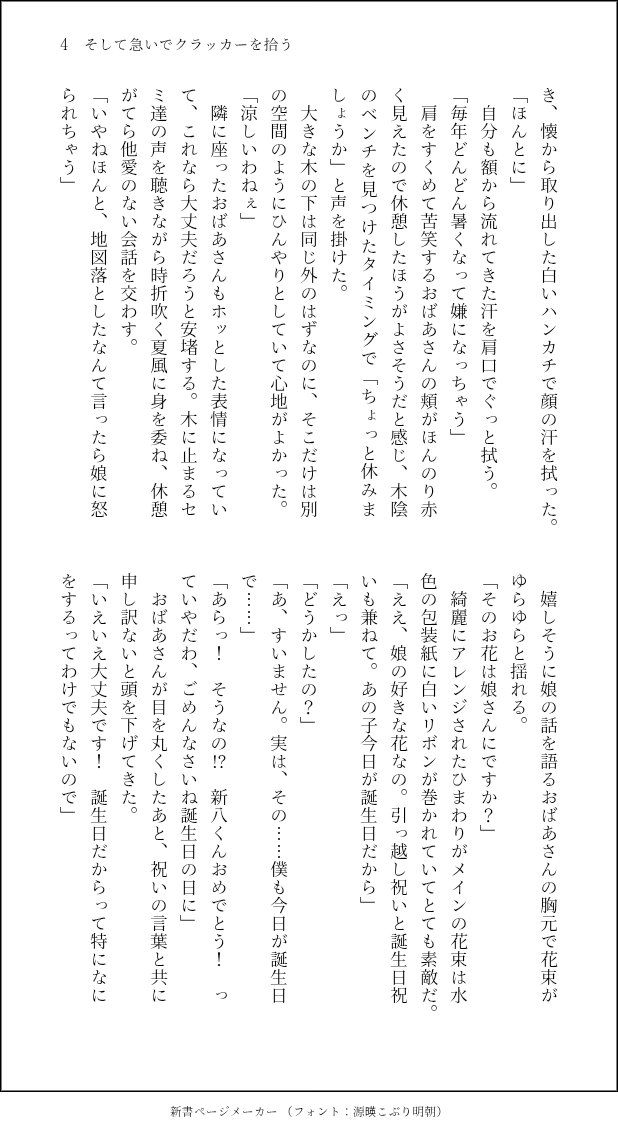 4　そして急いでクラッカーを拾う
き、懐から取り出した白いハンカチで顔の汗を拭った。
「ほんとに」
　自分も額から流れてきた汗を肩口でぐっと拭う。
「毎年どんどん暑くなって嫌になっちゃう」
　肩をすくめて苦笑するおばあさんの頬がほんのり赤
く見えたので休憩したほうがよさそうだと感じ、木陰
のベンチを見つけたタイミングで「ちょっと休みま
しょうか」と声を掛けた。
　大きな木の下は同じ外のはずなのに、そこだけは別
の空間のようにひんやりとしていて心地がよかった。
「涼しいわねぇ」
　隣に座ったおばあさんもホッとした表情になってい
て、これなら大丈夫だろうと安堵する。木に止まるセ
ミ達の声を聴きながら時折吹く夏風に身を委ね、休憩
がてら他愛のない会話を交わす。
「いやねほんと、地図落としたなんて言ったら娘に怒
られちゃう」
　嬉しそうに娘の話を語るおばあさんの胸元で花束が
ゆらゆらと揺れる。
「そのお花は娘さんにですか？」
　綺麗にアレンジされたひまわりがメインの花束は水
色の包装紙に白いリボンが巻かれていてとても素敵だ。
「ええ、娘の好きな花なの。引っ越し祝いと誕生日祝
いも兼ねて。あの子今日が誕生日だから」
「えっ」
「どうかしたの？」
「あ、すいません。実は、その……僕も今日が誕生日
で……」
「あらっ！　そうなの!?　新八くんおめでとう！　っ
ていやだわ、ごめんなさいね誕生日の日に」
　おばあさんが目を丸くしたあと、祝いの言葉と共に
申し訳ないと頭を下げてきた。
「いえいえ大丈夫です！　誕生日だからって特になに
をするってわけでもないので」
新書ページメーカー（フォント：源暎こぶり明朝）